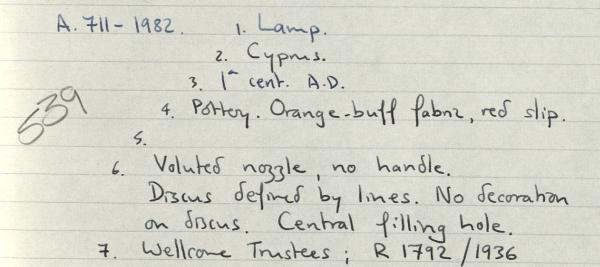 A. 711-1982. 1. Lamp.
2. Cyprus.
3. 1st cent. A.D.
539
4. Pottery. Orange-buff fabric, red slip.
5.
6. Voluted nozzle, no handle.
Discus defined by lines. No decoration
on discus. Central filling hole.
7. Wellcome Trustees; R 1792/1936